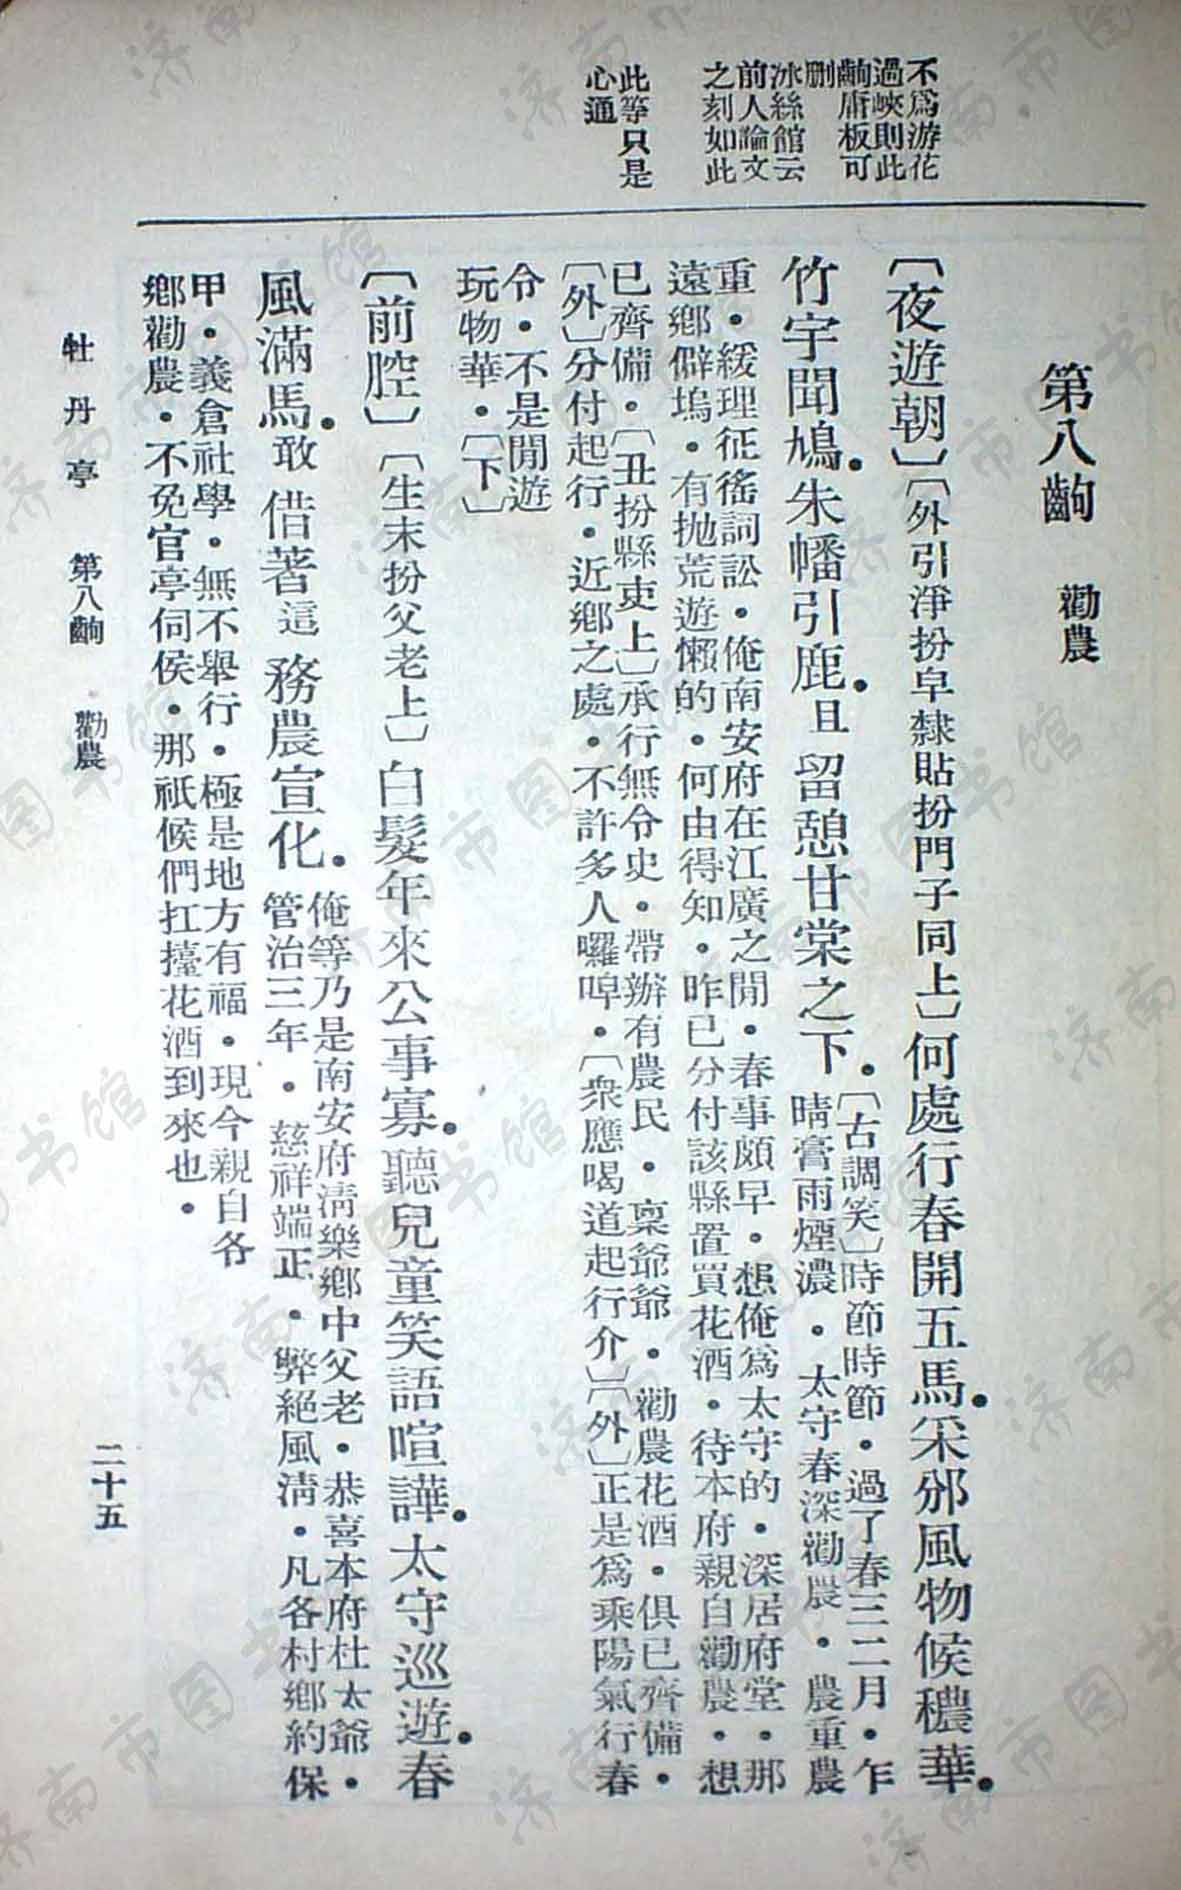 不爲游花
過峽則此
齣庸板可
刪
冰絲館云
前人論文
之刻如此
此等只是
心通
第八齣　勸農
〔夜遊朝〕〔外引淨扮皁隸貼扮門子同上〕何處行春開五馬。采邠風物候穠華。
竹宇聞鳩。朱幡引鹿。且留憩甘棠之下。〔古調笑〕時節時節·過了春三二月·乍
晴膏雨煙濃·太守春深勸農·農重農
重·緩理征徭詞訟·俺南安府在江廣之閒·春事頗早·想俺爲太守的·深居府堂·那
遠鄉僻塢·有抛荒遊懶的·何由得知·昨已分付該縣置買花酒·待本府親自勸農·想
已齊備·〔丑扮縣吏上〕承行無令史·帶辦有農民·稟爺爺·勸農花酒·俱已齊備·
〔外〕分付起行·近鄉之處·不許多人囉唣·〔衆應喝道起行介〕〔外〕正是爲乘陽氣行春
令·不是閒遊
玩物華·〔下〕
〔前腔〕〔生末扮父老上〕白髮年來公事寡。聽兒童笑語喧譁。太守巡遊。春
風滿馬。敢借著這務農宣化。俺等乃是南安府淸樂鄉中父老·恭喜本府杜太爺·
管治三年·慈祥端正·弊絕風淸·凡各村鄉約保
甲·義倉社學·無不舉行·極是地方有福·現今親自各
鄉勸農·不免官亭伺侯·那祇候們扛擡花酒到來也·
牡丹亭　第八齣　勸農
二十五
济南市图书馆